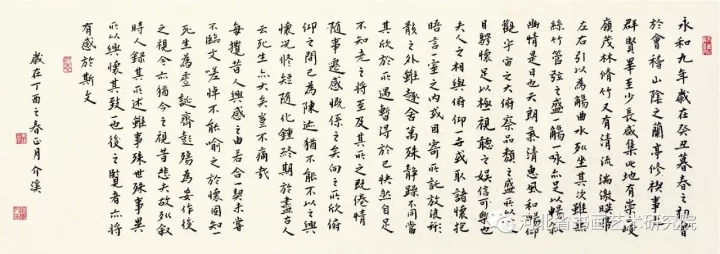 永和九年歲在癸丑暮春之初會
於會稽山陰之蘭亭修禊事也
群賢畢至少長咸集此地有崇峻
嶺茂林脩竹又有清流湍激暎帶
左右引以為觴曲水列坐其次雖無
絲竹管弦之盛一觴一詠亦足以暢敘
幽情是日也天朗氣清惠風和暢仰
觀宇宙之大俯察品類之盛所以遊
目騁懷足以極視聽之娛信可樂也
夫人之相與俯仰一世或取諸懷抱
晤言一室之內或因寄所託放浪形
骸之外雖趣舍萬殊靜躁不同當
其欣於所遇暫得於己快然自足
不知老之將至及其所之既倦情
隨事遷感慨係之矣向之所欣俯
仰之間已為陳迹猶不能不以之興
懷況修短隨化終期於盡古人
云死生亦大矣豈不痛哉
每攬昔人興感之由若合一契未嘗
不臨文嗟悼不能喻之於懷固知一
死生為虛誕齊彭殤為妄作後
之視今亦猶今之視昔悲夫故列敘
時人錄其所述雖事殊世殊事異
所以興懷其致一也後之覽者亦將
有感於斯文
歲在丁酉之春正月 介溪
河北省书画艺术研究院